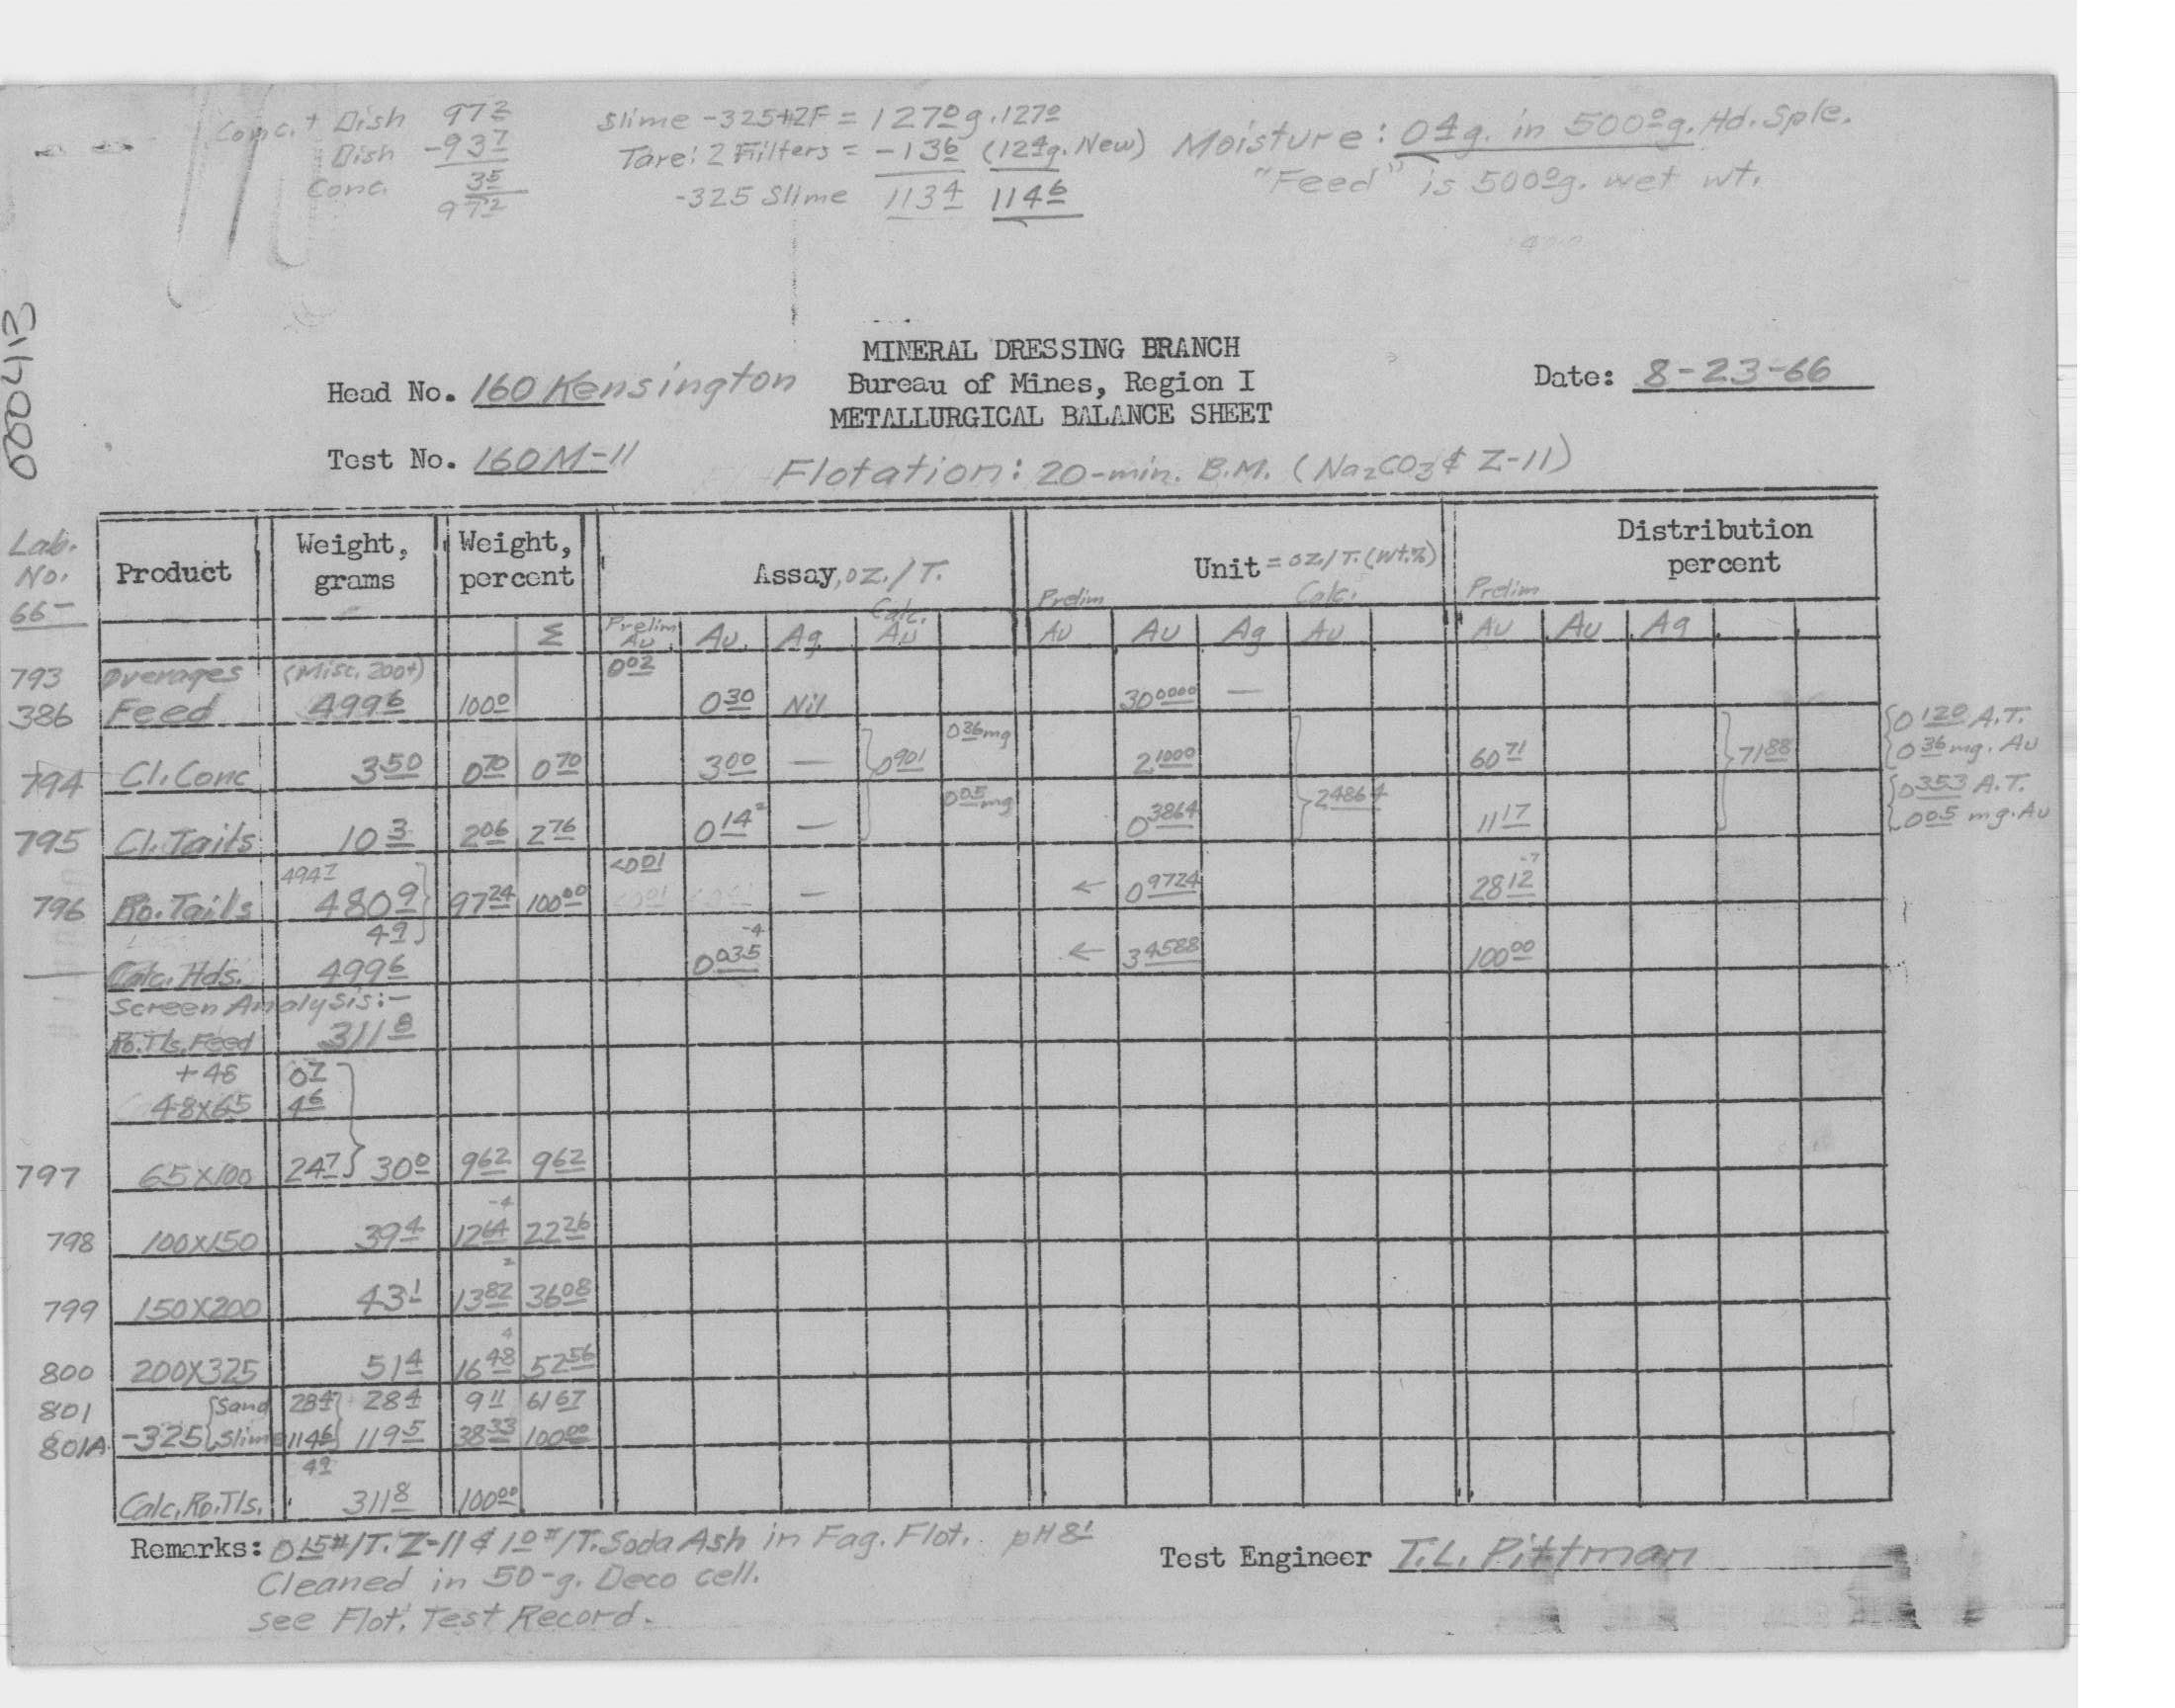 Conc. + Dish 97 2
Dish -93 7
Conc. 3 5
97 2
Slime -325+2F = 127 0 g. 127 0
Tare: 2 Filters = -13 6 (12 4 g. New)
-325 Slime 113 4 114 6
Moisture: 0 4 g. in 500 0 g. Hd. Sple.
"Feed" is 500 0 g. wet wt.
000413
MINERAL DRESSING BRANCH
Bureau of Mines, Region I
METALLURGICAL BALANCE SHEET
Head No. 160 Kensington
Date: 8-23-66
Test No. 160M-11
Flotation: 20-min. B.M. (Na2CO3 & Z-11)
Lab. No. 66-
Product
Weight, grams
Weight, percent
Assay, oz./T.
Unit = oz./T. (wt.%)
Distribution percent
Σ Prelim Au Au. Ag. Calc. Au Prelim Au Au Ag Calc. Au Prelim Au Au Ag
793 Overages (Misc. 200+) 0 02
386 Feed 499 6 100 0 0 30 Nil 30 0000 —
794 Cl. Conc 3 50 0 70 0 70 3 00 — 0 901 0 36 mg 2 1000 2 4864 60 71 71 88 0 120 A.T. 0 36 mg. Au
795 Cl. Tails 10 3 2 06 2 76 0 14 2 — 0 05 mg 0 3864 11 17 0 353 A.T. 0 05 mg. Au
796 Ro. Tails 494 7 480 9 97 24 100 00 <0 01 — ← 0 9724 28 12 -7
4 9
— Calc. Hds. 499 6 0 035 -4 ← 3 4588 100 00
Screen Analysis:-
Ro. Tls. Feed 311 8
+48 0 7
48x65 4 6
797 65x100 24 7 30 0 9 62 9 62
798 100x150 39 4 12 64 -4 22 26
799 150x200 43 1 13 82 2 36 08
800 200x325 51 4 16 48 4 52 56
801 Sand 28 4 28 4 9 11 61 67
801A -325 Slime 114 6 119 5 38 33 100 00
4 9
Calc. Ro. Tls. 311 8 100 00
Remarks: 0 15 #/T. Z-11 & 1 0 #/T. Soda Ash in Fag. Flot. pH 8 1
Cleaned in 50-g. Deco cell.
see Flot. Test Record.
Test Engineer T.L. Pittman